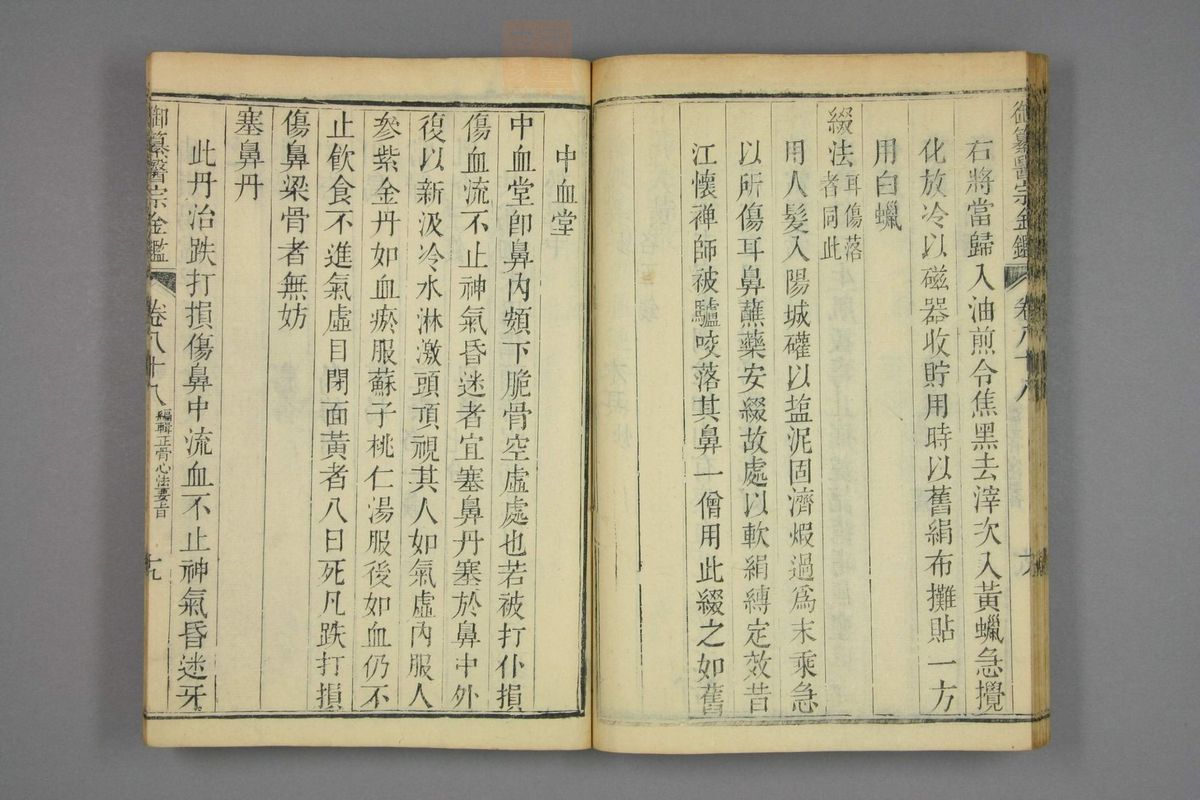 御纂醫宗金鑑 卷八十八
右將當歸入油煎令焦黑去滓次入黃蠟急攪
化放冷以磁器收貯用時以舊絹布攤貼一方
用白蠟
綴法耳傷落者同此
用人髮入陽城礶以塩泥固濟煆過爲末乘急
以所傷耳鼻蘸藥安綴故處以軟絹縛定效昔
江懷禅師被驢咬落其鼻一僧用此綴之如舊
中血堂
中血堂卽鼻內頞下脆骨空虛處也若被打仆損
傷血流不止神氣昏迷者宜塞鼻丹塞於鼻中外
復以新汲冷水淋激頭頂視其人如氣虛內服人
參紫金丹如血瘀服蘇子桃仁湯服後如血仍不
止飲食不進氣虛目閉面黃者八日死凡跌打損
傷鼻梁骨者無妨
塞鼻丹
此丹治跌打損傷鼻中流血不止神氣昏迷牙
御纂醫宗金鑑 卷八十八 編輯正骨心法要旨 九